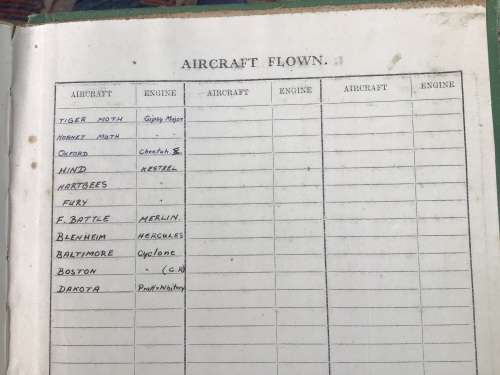 AIRCRAFT FLOWN.
AIRCRAFT ENGINE AIRCRAFT ENGINE AIRCRAFT ENGINE
TIGER MOTH Gipsy Major
HORNET MOTH " "
OXFORD Cheetah X
HIND KESTREL
HARTBEES "
FURY "
F. BATTLE MERLIN.
BLENHEIM HERCULES
BALTIMORE Cyclone
BOSTON " (G.R)
DAKOTA Pratt & Whitney